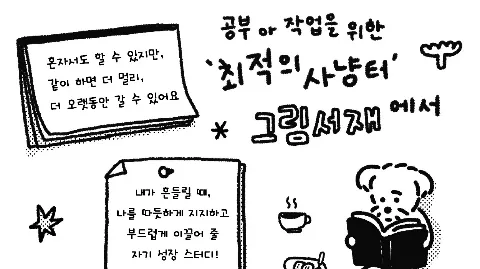 혼자서도 할 수 있지만,
같이 하면 더 멀리,
더 오랫동안 갈 수 있어요
공부 나 작업을 위한
'최적의 사냥터'
그림서재 에서
내가 흔들릴 때,
나를 따듯하게 지지하고
부드럽게 이끌어 줄
자기 성장 스터디!